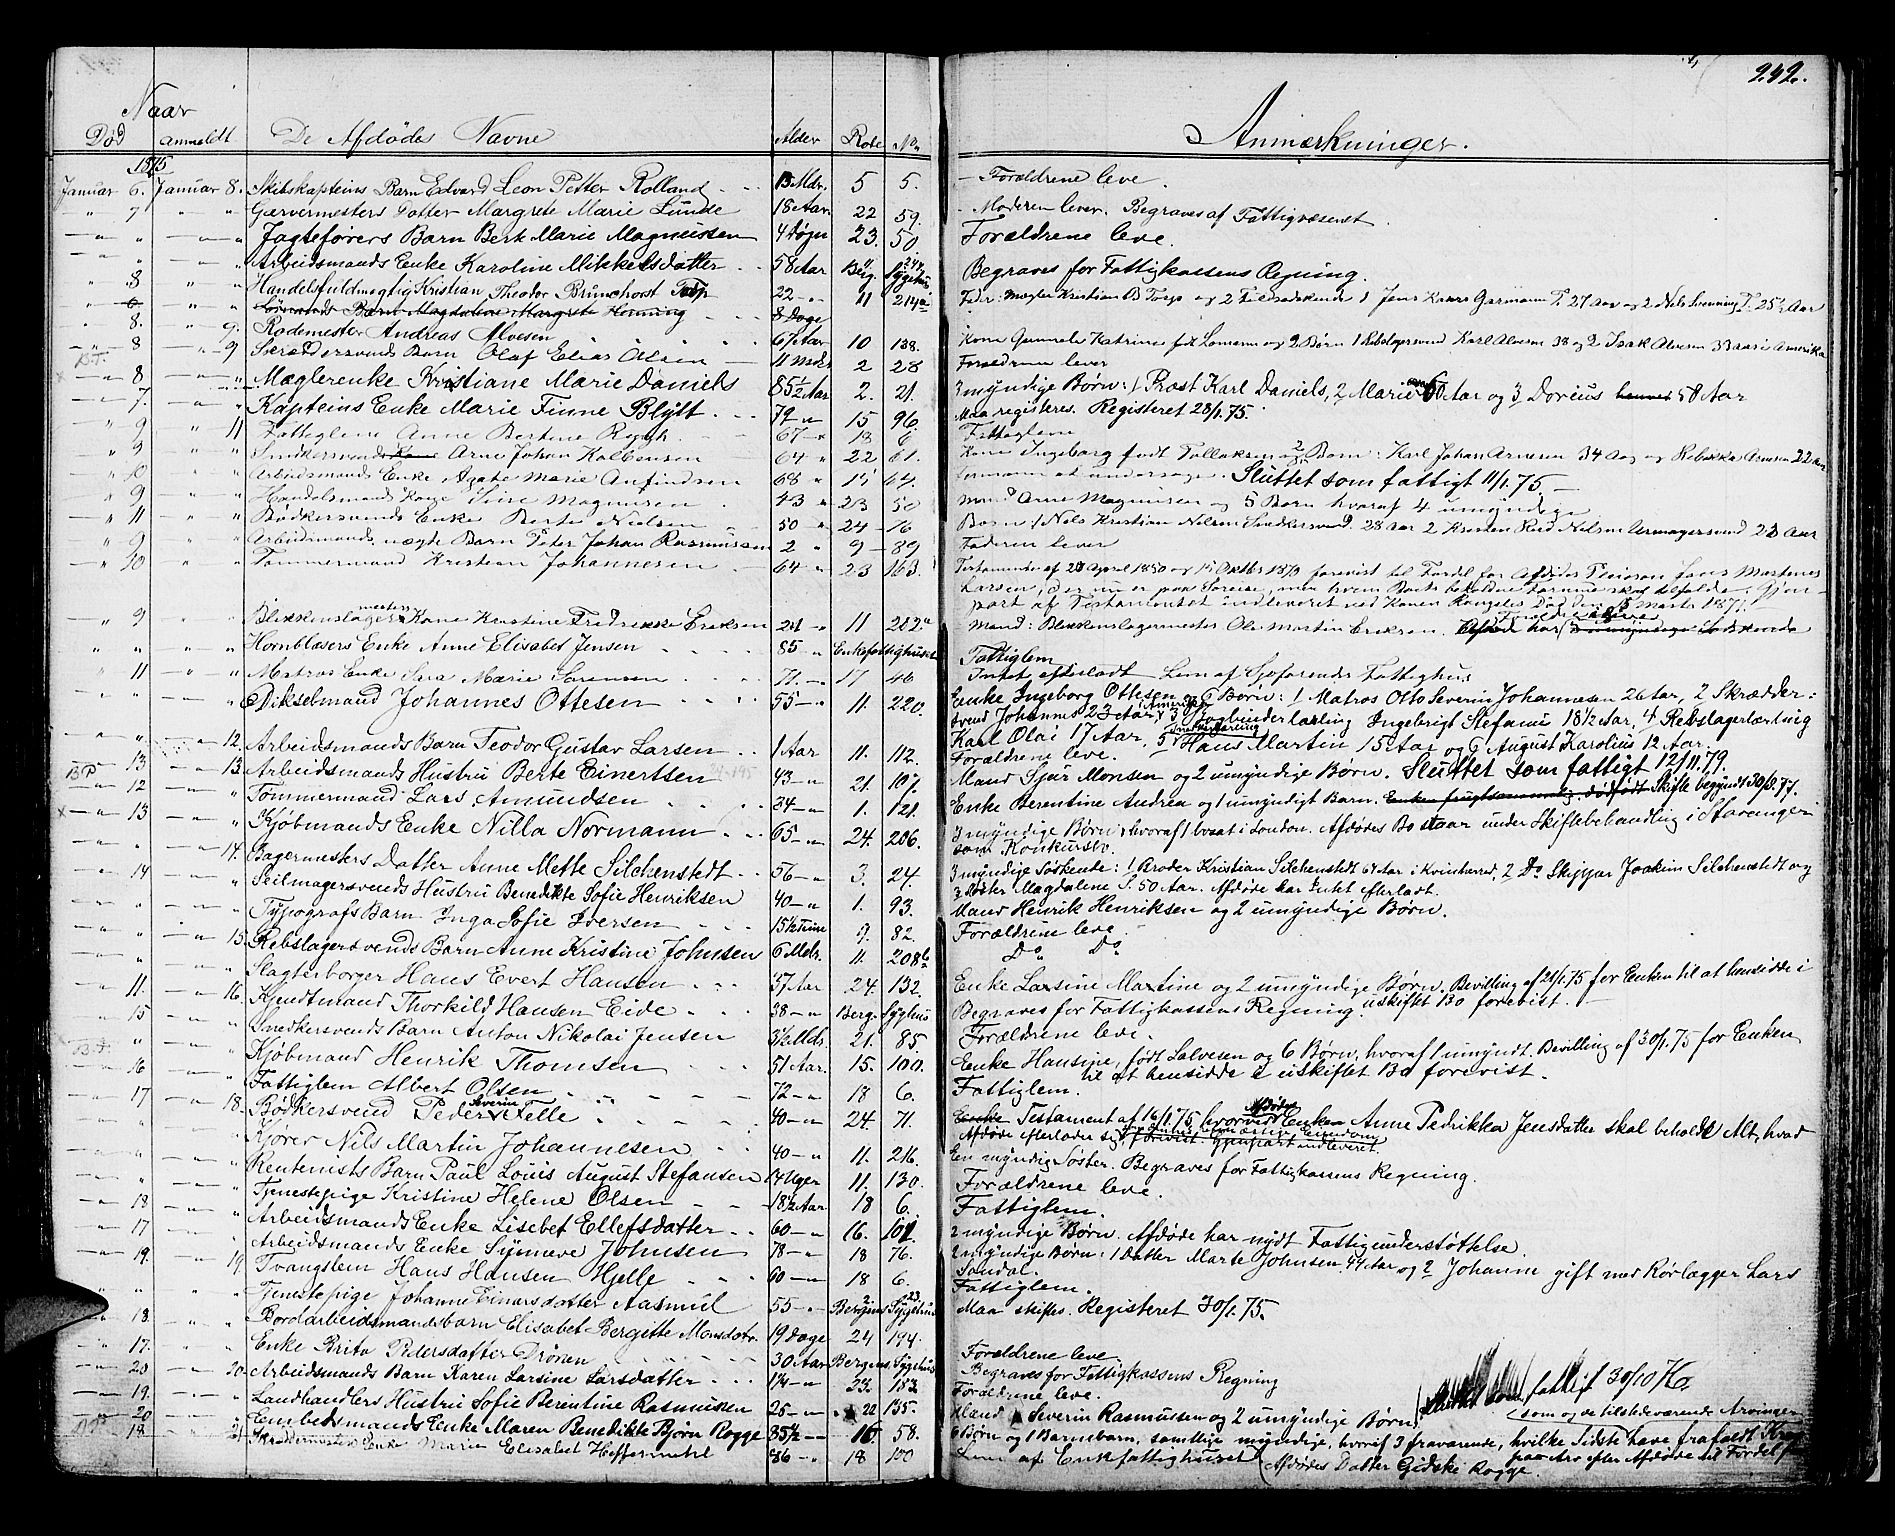 242.
Naar
Død anmeldt De Afdødes Navne Alder Rode No Anmærkninger.
1875
Januar 6. Januar 8. Skibskapteins Barn Edvard Leon Petter Rolland 13 Mdr. 5 5. Forældrene leve.
" 7 " " Garvermesters Datter Margrete Marie Lunde 18 Aar 22 59. Moderen lever. Begraves af Fattigvæsenet.
" " " " Jagteførers Barn Berk Marie Magnussen 4 Døgn 23. 50 Forældrene leve.
" " " Arbeidsmands Enke Karoline Mikkelsdatter 58 Aar Berg. Sygehus Begraves for Fattigkassens Regning.
" 8 " " Handelsfuldmægtig Kristian Theodor Brunchorst 22 " 11 214a Fader: Mægler Kristian B. og 2 1 Jens 27 Aar og 2 Nels 25½ Aar
" 6. " " Barn Magdalene Margrete Hornung 8 Dage
" 8. " 9. Rodemester Andreas Alvesen 67 Aar 10 138. Kone Gunnele Katrine født og 2 Børn 1 Rebslagersvend Karl Alvesen 38 og 2 Isak Alvesen 33 Aar i Amerika
" 8 " 9 Skræddersvends Barn Olaf Elias Olsen 11 Mdr 2 28 Forældrene lever
" 8 " " Mæglerenke Kristiane Marie Daniels 85½ Aar 2. 21. 3 myndige Børn: 1 Præst Karl Daniels, 2 Marie 60 Aar og 3 Dorius 58 Aar
" 7. " " Kapteins Enke Marie Finne Blytt 79 " 15 96. Maa registeres. Registeret 28/1.75.
" 9 " 11 Fattiglem Anne Bertine 67 " 18 6. Fattiglem
" 9 " " Snedkersvend Arne Johan Kolbensen 64 " 22 61. Kone Ingeborg født Tollaksen og 2 Børn: Karl Johan Arnesen 34 Aar og Rebekka Arnesen 22 Aar
" 10 " " Arbeidsmands Enke Agate Marie Anfindsen 68 " 15 64. Sluttet som fattigt 11/1.75.
" 9 " " Handelsmands Kone Magnusen 43 " 23 50 Mand Arne Magnusen og 5 Børn hvoraf 4 umyndige
" 11 " " Bødkersvends Enke Berte Nielsen 50 " 24 16 Børn: 1 Nels Kristian Nilsen Snedkersvend 28 Aar 2 Kristen Nilsen Urmagersvend 23 Aar
" 9 " " Arbeidsmands uægte Barn Peter Johan Rasmussen 2 " 9 89 Faderen lever
" 10 " " Tømmermand Kristian Johannesen 64 " 23 163. Testamenter af 27 April 1850 og 15 Oktbr 1870 forevist til Fordel for Afdødes Jens Martenes
Larsen, der nu er paa Søreise, men hvem Boets beholdne Formue skal tilfalde. Gjen-
part af Testamentet indleveret ved Konen Død den 5 Marts 1871.
" 9 " " Blikkenslagermesters Kone Kristine Fredrikke Eriksen 24 " 11 282a Mand: Blikkenslagermester Ole Martin Eriksen. Afdøde har Forældre umyndige Sødskende
" " " " Hornblæsers Enke Anne Elisabet Jensen 85 " Enkefattighuset Fattiglem
" 11 " " Matros Enke Sara Marie Sørensen 77. " 17 46 Intet efterladt Lem af Søfarendes Fattighus
" " " " Dikselmand Johannes Ottesen 55 " 11. 220. Enke Ingeborg Ottesen og 6 Børn: 1 Matros Otto Severin Johannesen 26 Aar, 2 Skrædder-
svend Johannes 23 Aar i Amerika, 3 Bogbinderlærling Ingebrigt Stefanus 18½ Aar, 4 Rebslagerlærling
Karl Olai 17 Aar, 5 Snedkerlærling Hans Martin 15 Aar og 6 August Karolius 12 Aar.
" " " 12. Arbeidsmands Barn Teodor Gustav Larsen 1 Aar 11. 112. Forældrene leve.
" 13 " 13. Arbeidsmands Hustru Berte Einertsen 43 " 21. 107. Mand Sjur Monsen og 2 umyndige Børn. Sluttet som fattigt 12/11.79.
" 12 " " Tømmermand Lars Amundsen 34 " 1. 121. Enke Berentine Andrea og 1 umyndigt Barn. Enken frugtsommelig. dødfødt Skifte begyndt 30/8.77.
" 13 " " Kjøbmands Enke Nilla Normann 65 " 24. 206. 3 myndige Børn, hvoraf 1 bosat i London. Afdødes Bo staar under Skiftebehandling i Stavanger
som Konkursbo.
" " " 14. Bagermesters Datter Anne Mette Silchenstedt 56 " 3. 24. 3 myndige Søskende: 1 Broder Kristian Silchenstedt 67 Aar i Kvinherred, 2 Do Skipper Joakim Silchenstedt og
3 Søster Magdalene S. 50 Aar. Afdøde har Intet efterladt.
" 14 " " Seilmagersvends Hustru Benedikte Sofie Henriksen 40 " 1. 93. Mand Henrik Henriksen og 2 umyndige Børn.
" " " " Typografs Barn Inga Sofie Iversen 15½ Time 9. 82. Forældrene leve.
" " " 15. Rebslagersvends Barn Anne Kristine Johnsen 6 Mdr. 11. 208b Do Do
" " " " Slagterborger Hans Evert Hansen 37 Aar 24. 132. Enke Larsine Martine og 2 umyndige Børn. Bevilling af 21/1.75 for Enken til at hensidde i
uskiftet Bo forevist.
" 11. " 16. Kjendtmand Thorkild Hansen Eide 38 " Berg. Sygehus Begraves for Fattigkassens Regning.
" 15 " " Smedkersvends Barn Anton Nikolai Jensen 3½ Mdr. 21. 85 Forældrene leve.
" " " " Kjøbmand Henrik Thomsen 51 Aar. 15. 100. Enke Hansine, født Salvesen og 6 Børn, hvoraf 1 umyndt. Bevilling af 30/1.75 for Enken
til at hensidde i uskiftet Bo forevist.
" 16 " " Fattiglem Albert Olsen 72 " 18 6. Fattiglem.
" 17 " 18. Bødkersvend Peder Severin Felle 40 " 24. 71. Enke Testament af 16/1.75, hvorved Enken Anne Pedrikka Jensdatter skal beholde Alt, hvad
Afdøde efterlader sig, forevist. Gjenpart indleveret.
" " " " Kjører Nils Martin Johannesen 40 " 11. 216. En myndig Søster. Begraves for Fattigkassens Regning.
" " " " Rentenists Barn Paul Louis August Stefansen 14 Uger 11. 130. Forældrene leve.
" 18 " " Tjenestepige Kristine Helene Olsen 18½ Aar 18 6. Fattiglem.
" 17 " " Arbeidsmands Enke Lisebet Ellefsdatter 60 " 16. 101. 2 myndige Børn. Afdøde har nydt Fattigunderstøttelse.
" " " " Arbeidsmands Enke Synneve Johnsen 78 " 18 76. 2 myndige Børn: 1 Datter Marte Johnsen, 44 Aar og 2 Johanne gift med Rørlægger Lars
Sandal.
" 19. " 19. Tvangslem Hans Hansen Hjelle 60 " 18 6. Fattiglem.
" " " " Tjenestepige Johanne Einarsdatter Aasmul 55 " Bergens Sygehus Maa skiftes. Registeret 30/1.75.
" 18. " " Bordarbeidsmandsbarn Elisabet Bergitte Monsdatr. 19 Dage 24 194. Forældrene leve.
" 17. " " Enke Brita Pedersdatter Drønen 30 Aar Bergens Sygehus Begraves for Fattigkassens Regning
" 20 " 20. Arbeidsmands Barn Karen Larsine Larsdatter 1¼ " 23. 183. Forældrene leve.
" 19. " " Landhandlers Hustru Sofie Berentine Rasmussen 25 " 22 135. Mand Severin Rasmussen og 2 umyndige Børn. Sluttet som fattigt 30/10 76.
" 20 " " Embedsmands Enke Maren Benedikte Bjørn Rogge 85½ " 16. 58. 6 Børn og 1 Barnebarn, samtlige myndige, hvoraf 3 fraværende, hvilke Sidste have frafaldt
som og de tilstedeværende Arvinger
paa Arv efter Afdøde til Fordel for
Afdødes Datter Gidske Rogge.
" 18 " 21 Skræddermester Enke Maren Elisabet Heffermehl 86 " 18 100 Lem af Enkefattighuset